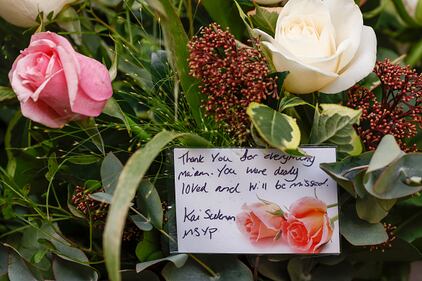 Thank You for everything
ma'am. You were dearly
loved and will be missed.
MSYP